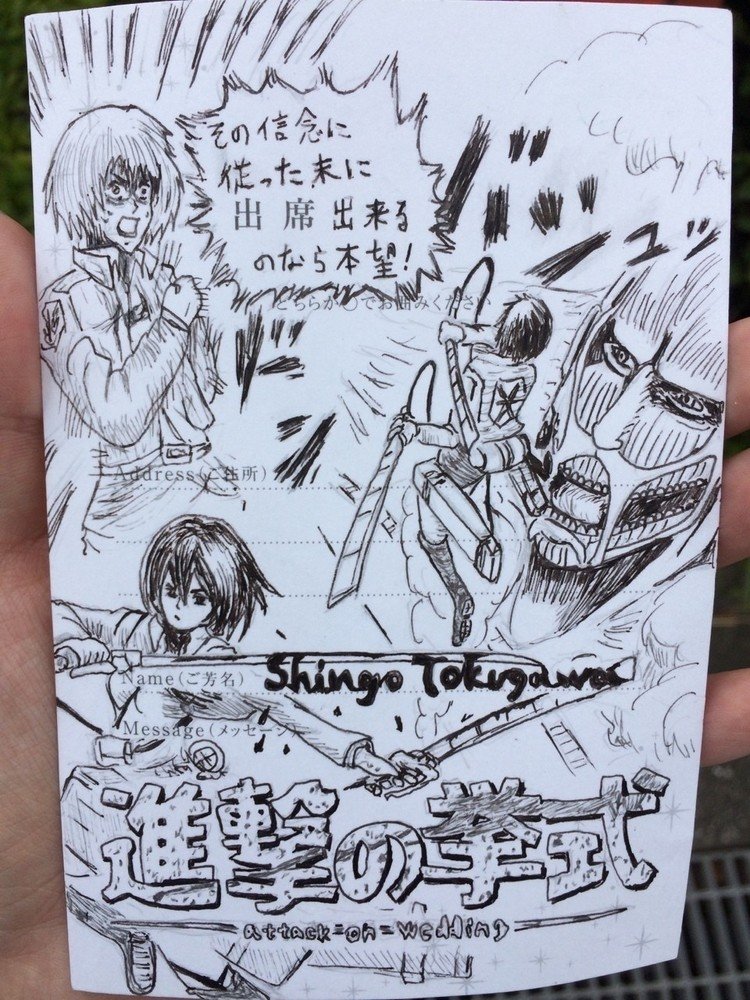 その信念に
従った末に
出席出来る
のなら本望!
どちらか○でお囲みください
Address(ご住所)
Name(ご芳名) Shingo Tokugawa
Message(メッセージ)
進撃の挙式
attack=on=wedding